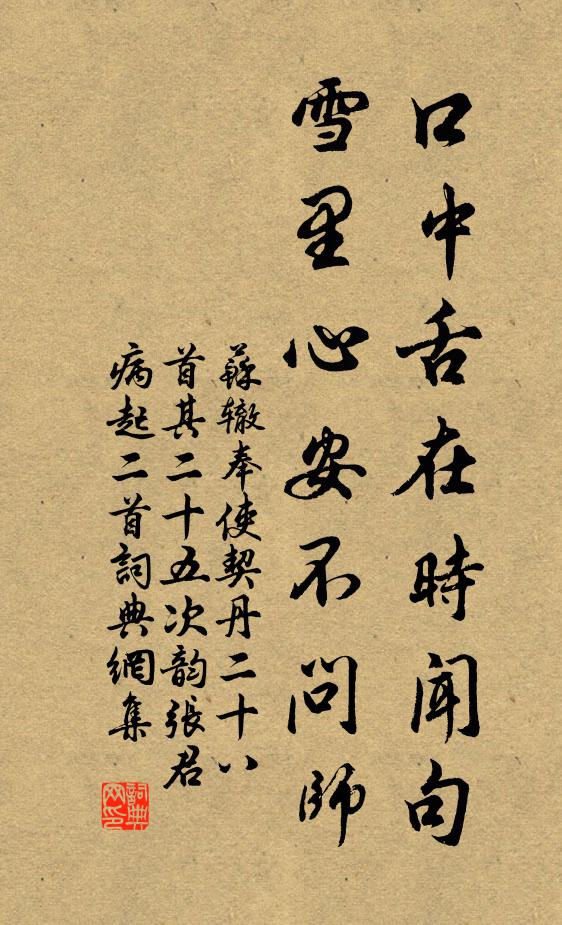 口中舌在時聞句
雪里心安不問師
蘇辙奉使契丹二十八
首其二十五次韵張君
病起二首詞典網集
詞典
网印